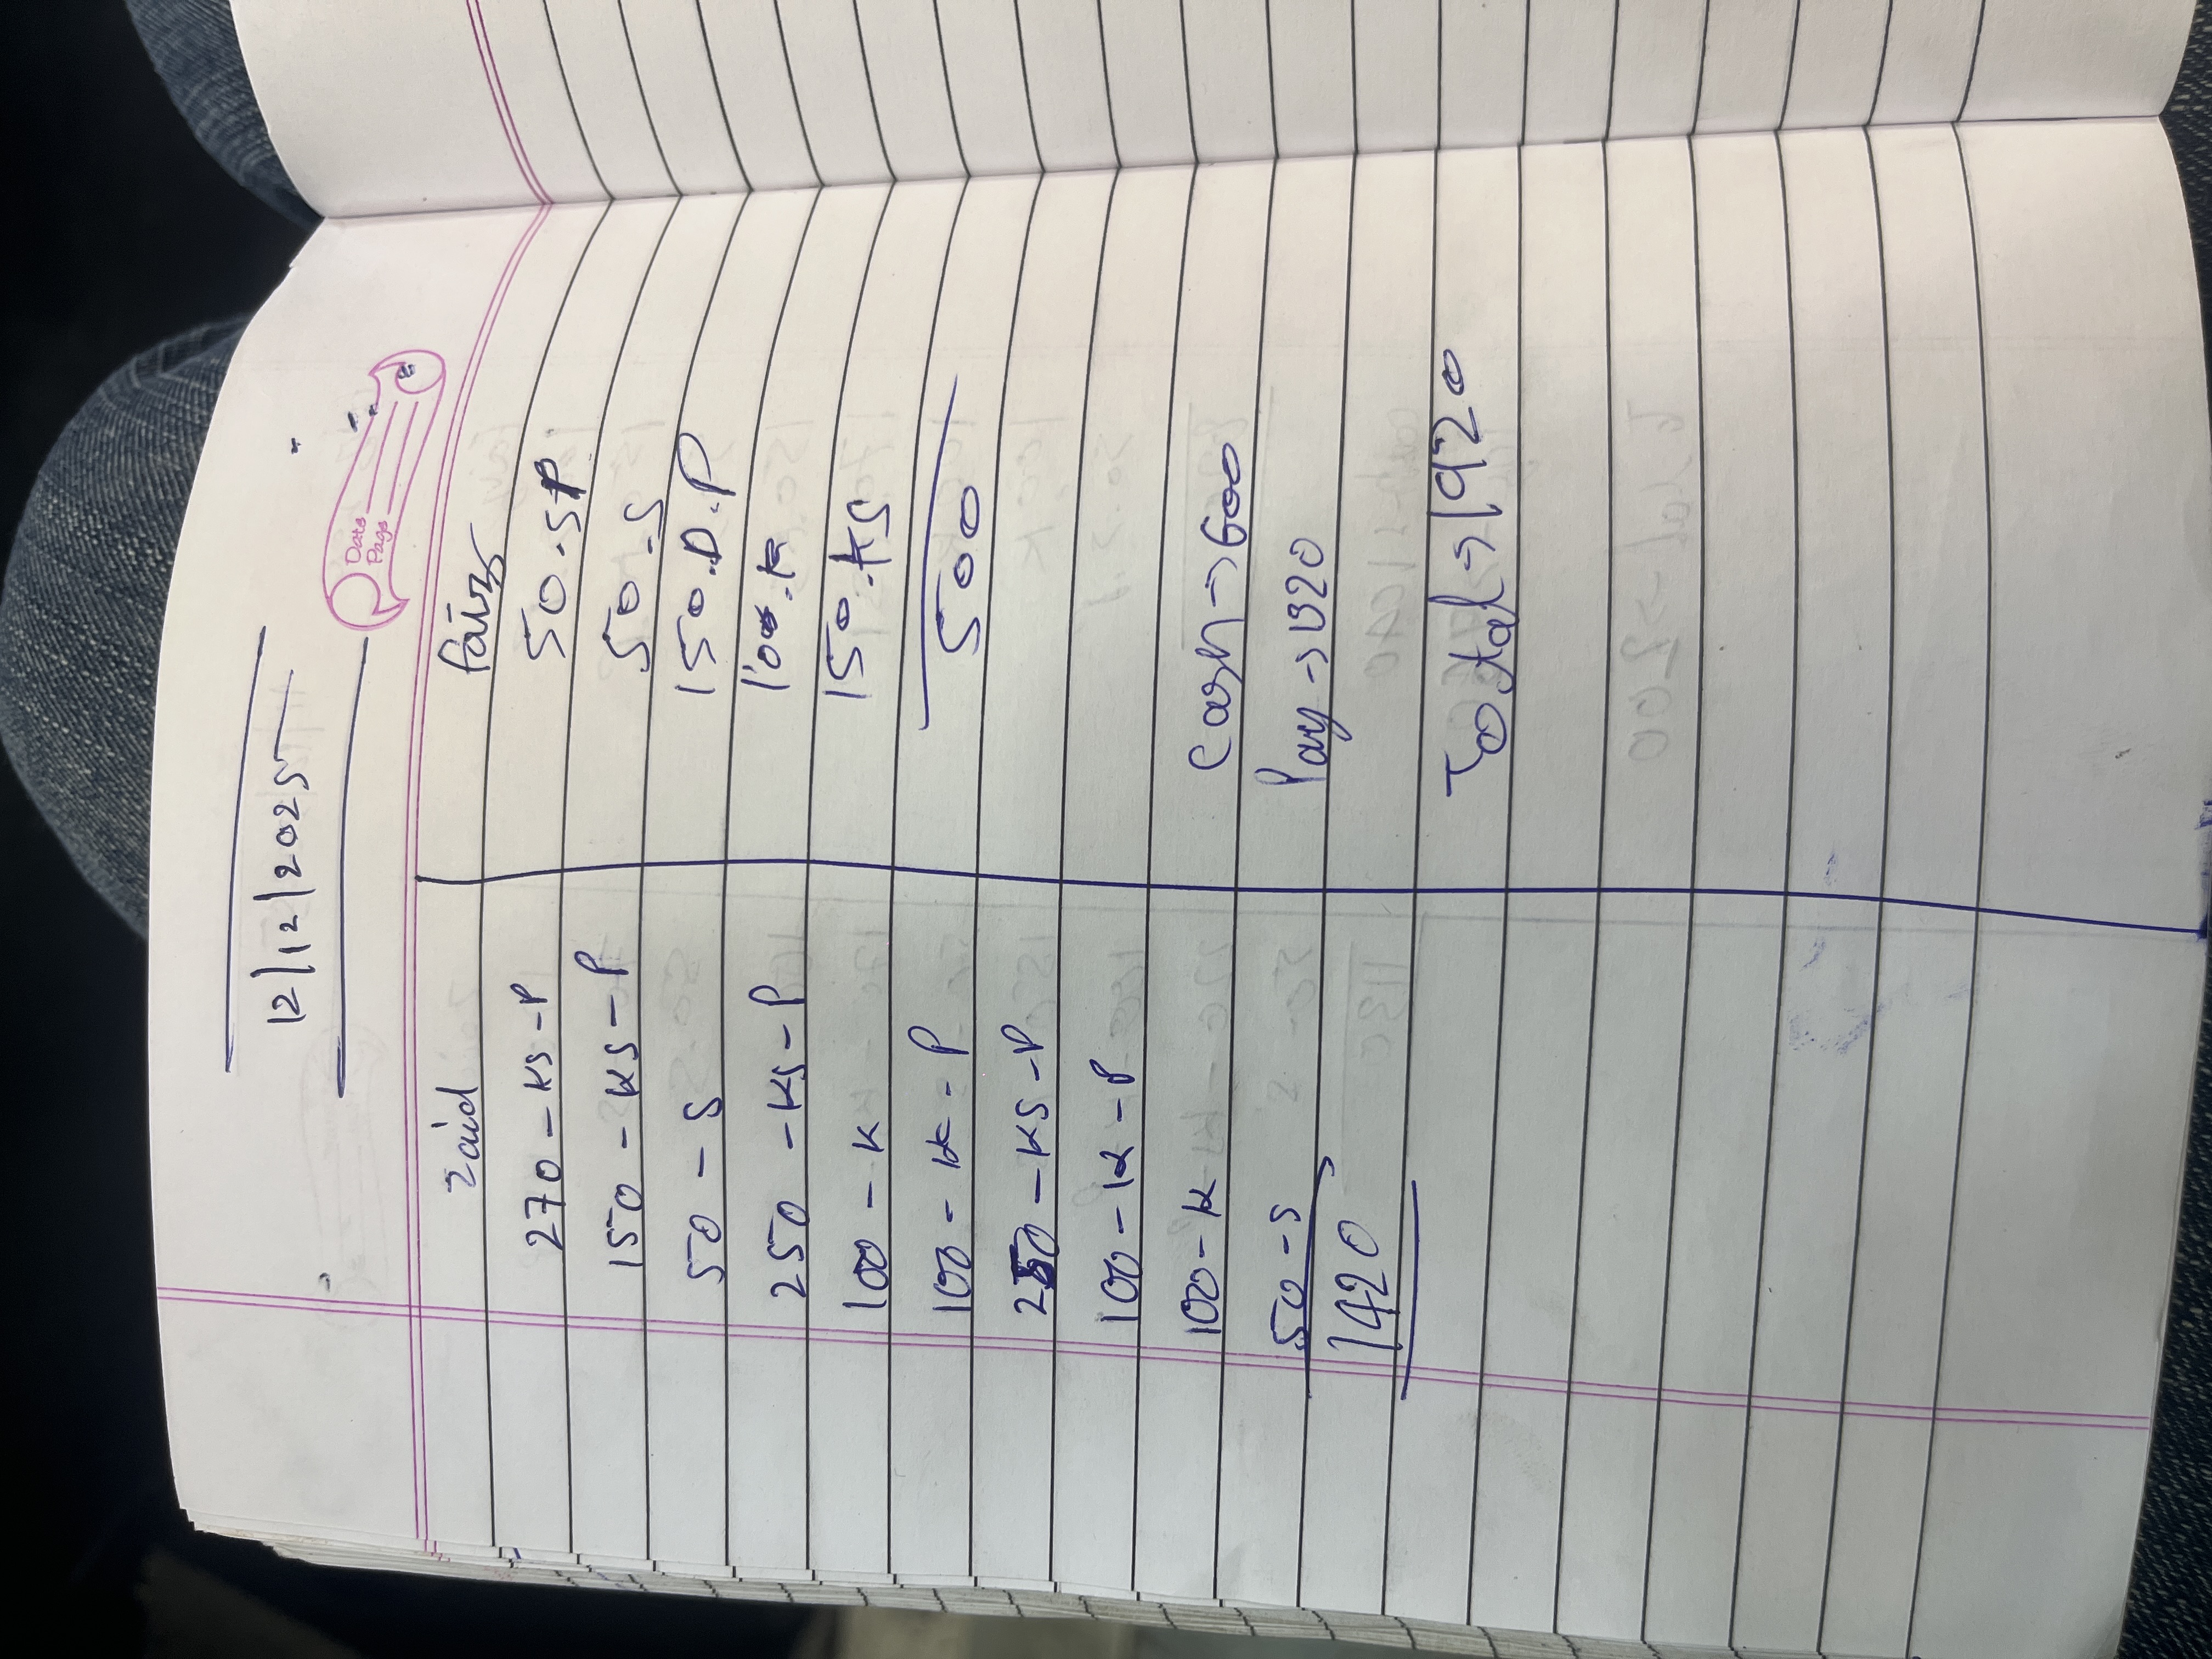 12/12/2025
Date
Page
Zaid
270 - KS - P
150 - KS - P
50 - S
250 - KS - P
100 - K
100 - K - P
250 - KS - P
100 - K - P
100 - K
50 - S
1420
faiz
50.SP
50.S
150.D.P
100.K
150.KS
500
Cash → 600
Pay → 1320
Total → 1920